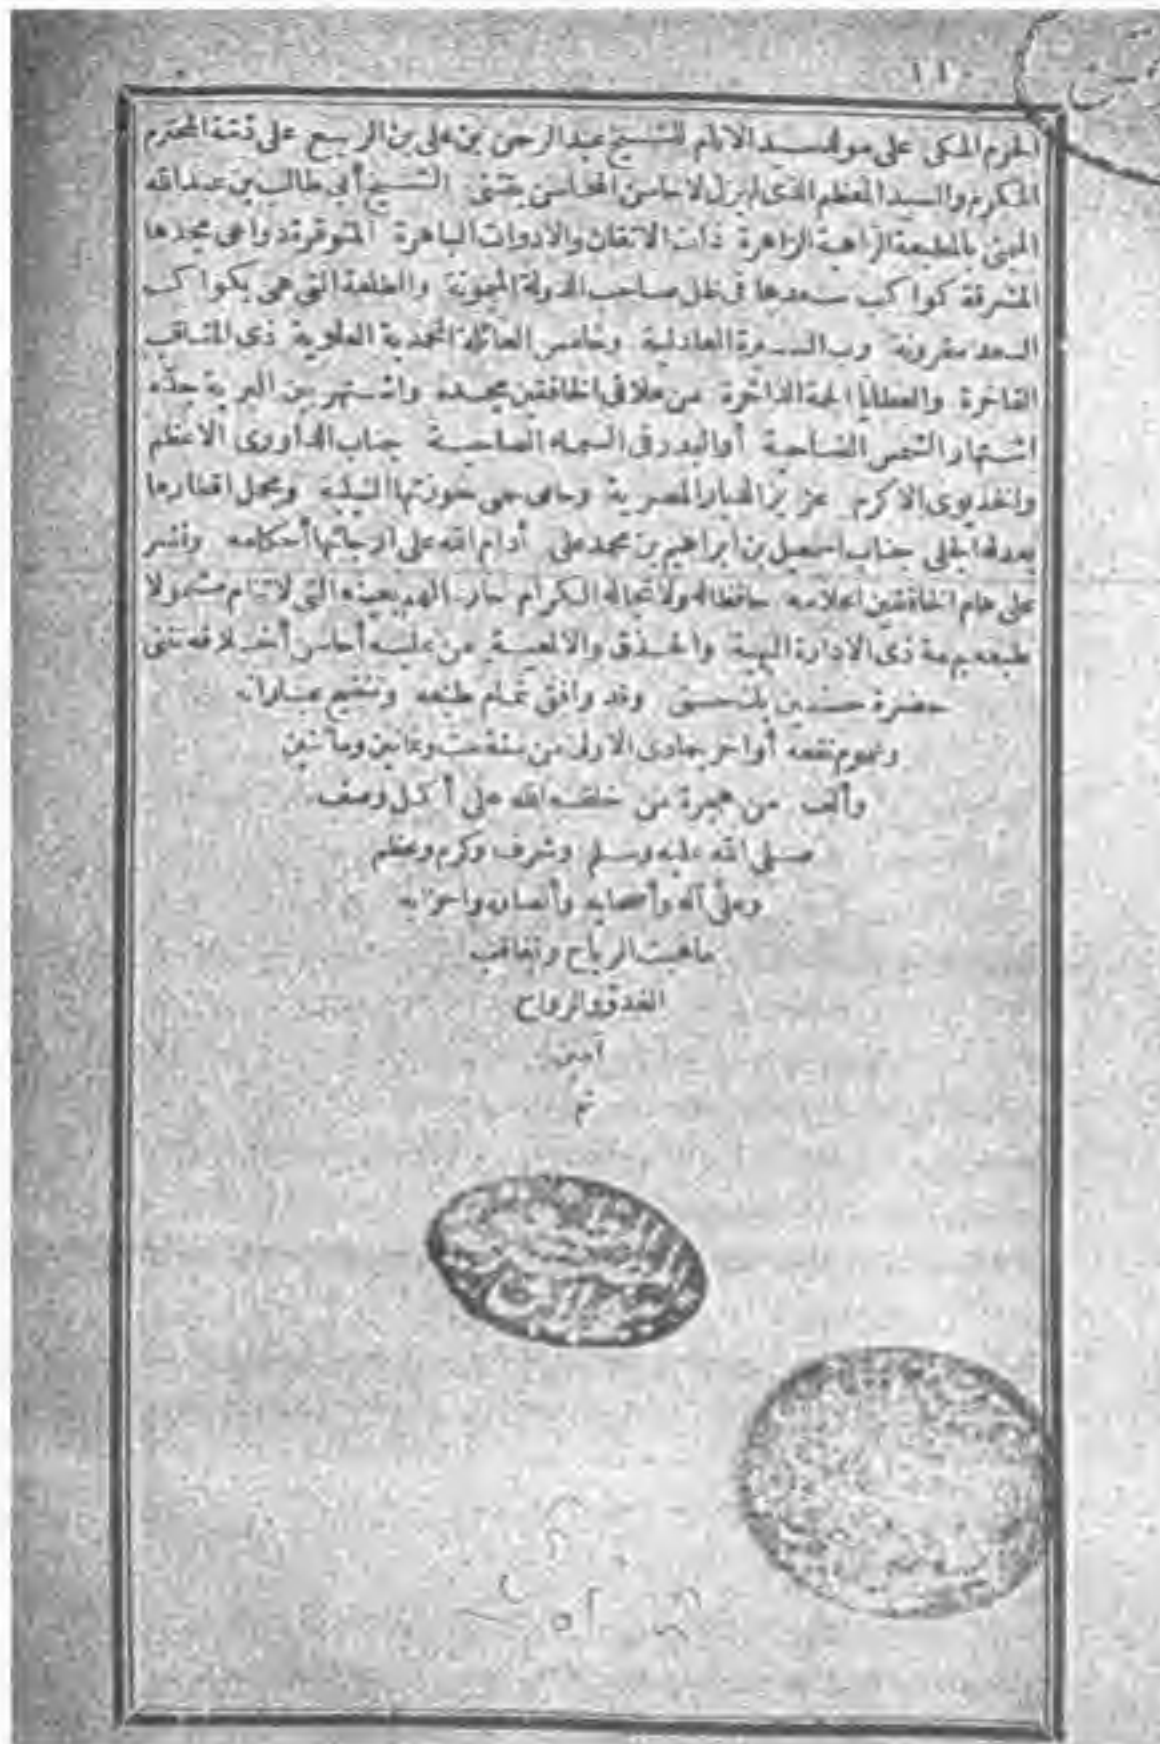 ١١٠
الحرم المكى على مولد سيد الانام للشيخ عبد الرحمن بن على بن الربيع على ذمة المحترم
المكرم والسيد المعظم الذى لم يزل لاحاسن المحاسن يقتنى الشيخ أبى طالب بن عبد الله
الميمنى بالمطبعة الزاهية الزاهرة ذات الاتقان والادوات الباهرة المتوفرة دواعى مجدها
المشرقة كواكب سعدها فى ظل صاحب الدولة الميمونة والطلعة التى هى بكواكب
السعد مقرونة رب السيرة العادلية وخامس العائلة المحمدية العلوية ذى المناقب
الفاخرة والعطايا الجمة الذاخرة من علا فى الخافقين مجده واشتهر بين البرية جده
اشتهار الشمس الضاحية أو البدر فى السماء الصاحية جناب الداورى الاعظم
والخديوى الاكرم عزيز الديار المصرية وحامى حمى حوزتها النيلية ومجمل اقطارها
بعدله الجلى جناب اسمعيل بن ابراهيم بن محمد على أدام الله على ارجائها أحكامه ونشر
على هام الخافقين اعلامه حافظا له ولانجاله الكرام حارسا لهم بعينه التى لا تنام مشمولا
طبعه بهمة ذى الادارة البهية والحذق والالمعية من عليه أحاسن أخلاقه تثنى
حضرة حسين بك حسنى وقد وافق تمام طبعه وتنقيح عباراته
وعموم نفعه أواخر جمادى الاولى من سنة ست وثمانين ومائتين
وألف من هجرة من خلقه الله على أكمل وصف
صلى الله عليه وسلم وشرف وكرم وعظم
وعلى آله وأصحابه وأنصاره واحزابه
ما هبت الرياح وتعاقب
الغدو والرواح
آمين
تم